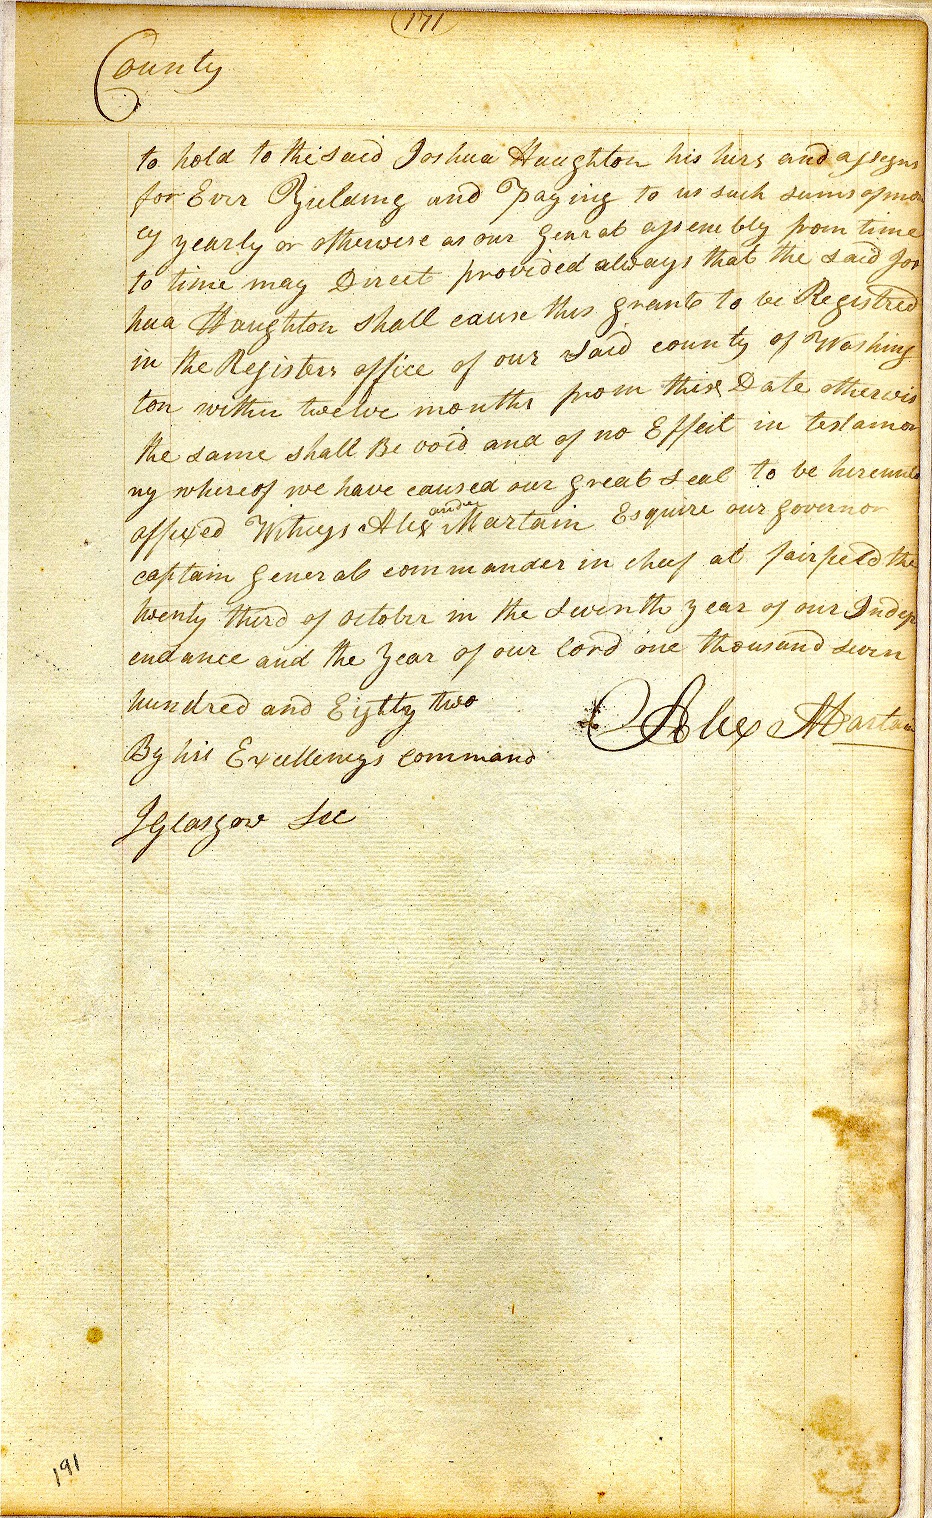 171
County
to hold to the said Joshua Haughton his hirs and assegns
for Ever Yielding and Paying to us such sums of mon
ey yearly or otherwise as our genral assembly from time
to time may Direct provided always that the said Jos
hua Haughton shall cause this grant to be Registred
in the Registers office of our said county of Washing
ton within twelve months from this Date otherwis
the same shall Be void and of no Effect in testamon
ny whereof we have caused our great seal to be hereunto
affixed Witness Alex ander Martain Esquire our governor
captain general commander in cheef at fairfield the
twenty third of october in the seventh year of our Indep
endance and the year of our lord one thousand seven
hundred and Eighty two
Alex Martain
By his Excellencys command
J Glasgow Sec
191